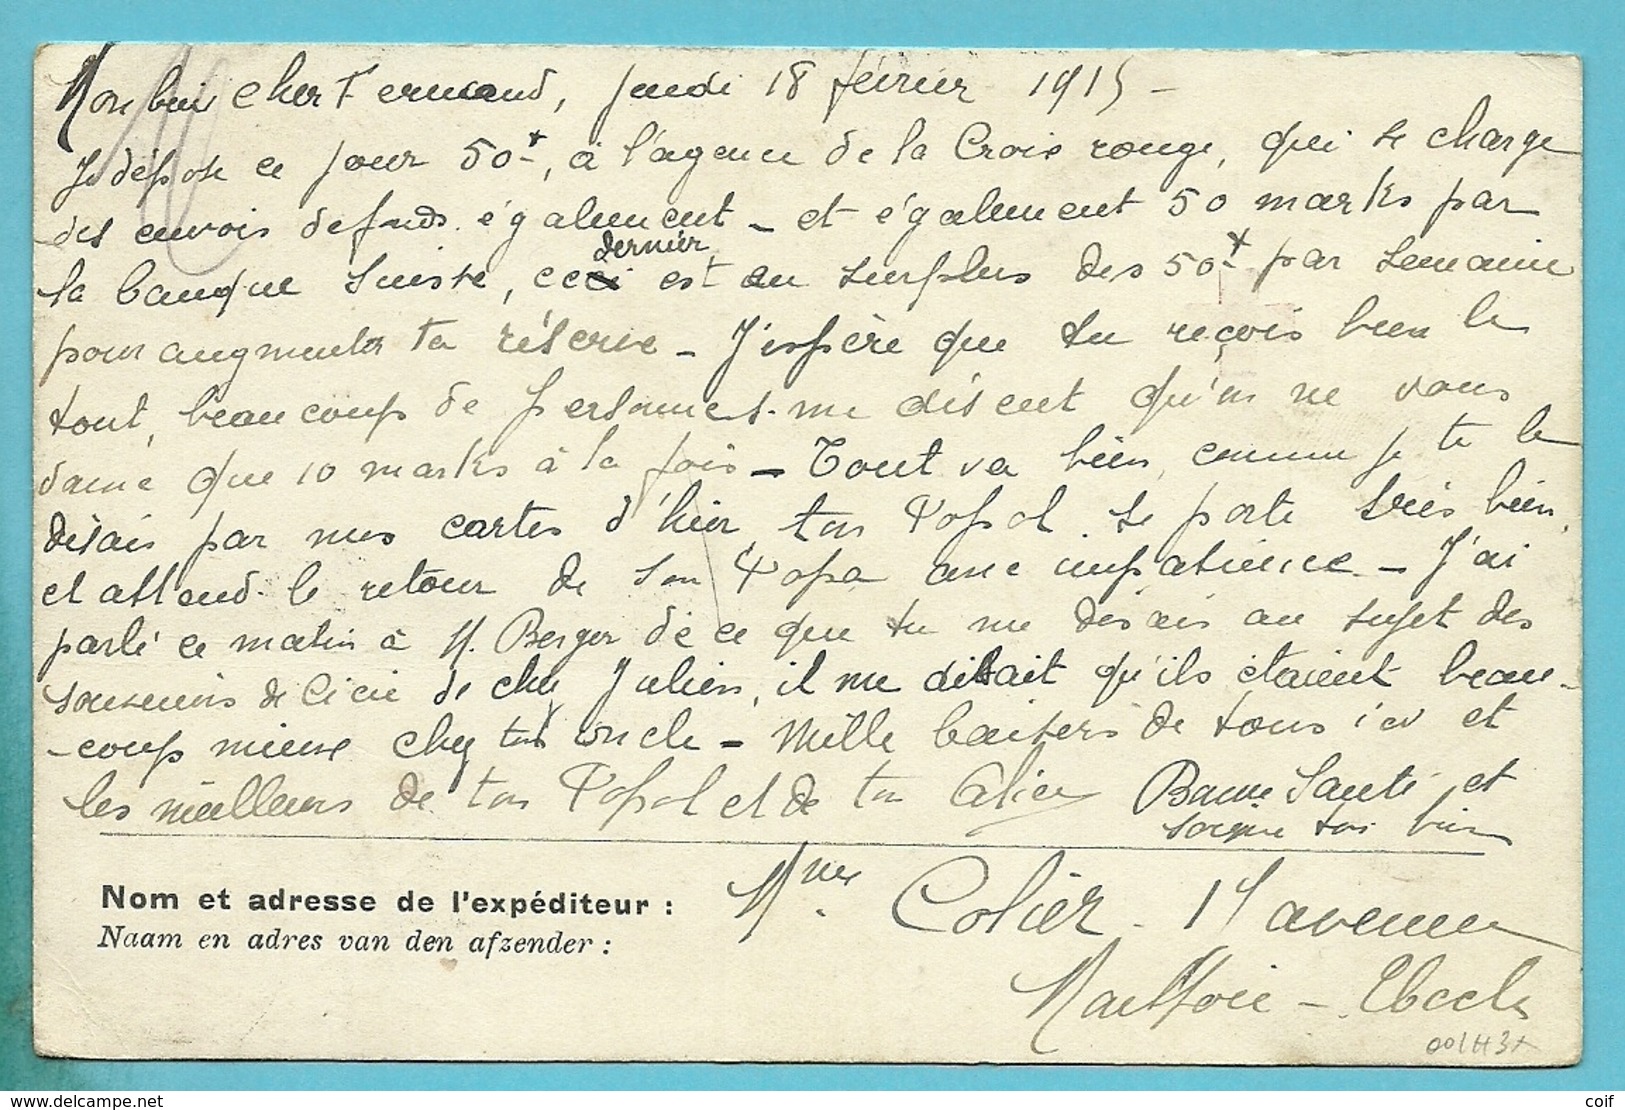 Mon bien cher Fernand, jeudi 18 février 1915 -
Je dépose ce jour 50 +, à l'agence de la Croix rouge, qui se charge
des envois de fonds également - et également 50 marks par
dernier
la banque suisse, ceci est au surplus des 50 + par semaine
pour augmenter ta réserve - J'espère que tu reçois bien le
tout, beaucoup de personnes me disent qu'on ne vous
donne que 10 marks à la fois - Tout va bien, comme je te le
disais par mes cartes d'hier, ton Popol se porte très bien,
et attend le retour de son Papa avec impatience - J'ai
parlé ce matin à M. Berger de ce que tu me disais au sujet des
souvenirs de de chez Julien, il me disait qu'ils étaient beau-
-coup mieux chez ton oncle - Mille baisers de tous ici et
les meilleurs de ton Popol et de ton Alice Bonne Santé et
soigne toi bien
Nom et adresse de l'expéditeur : Mme Colier - 17 avenue
Naam en adres van den afzender :
- Ixelles
delcampe.net
coif